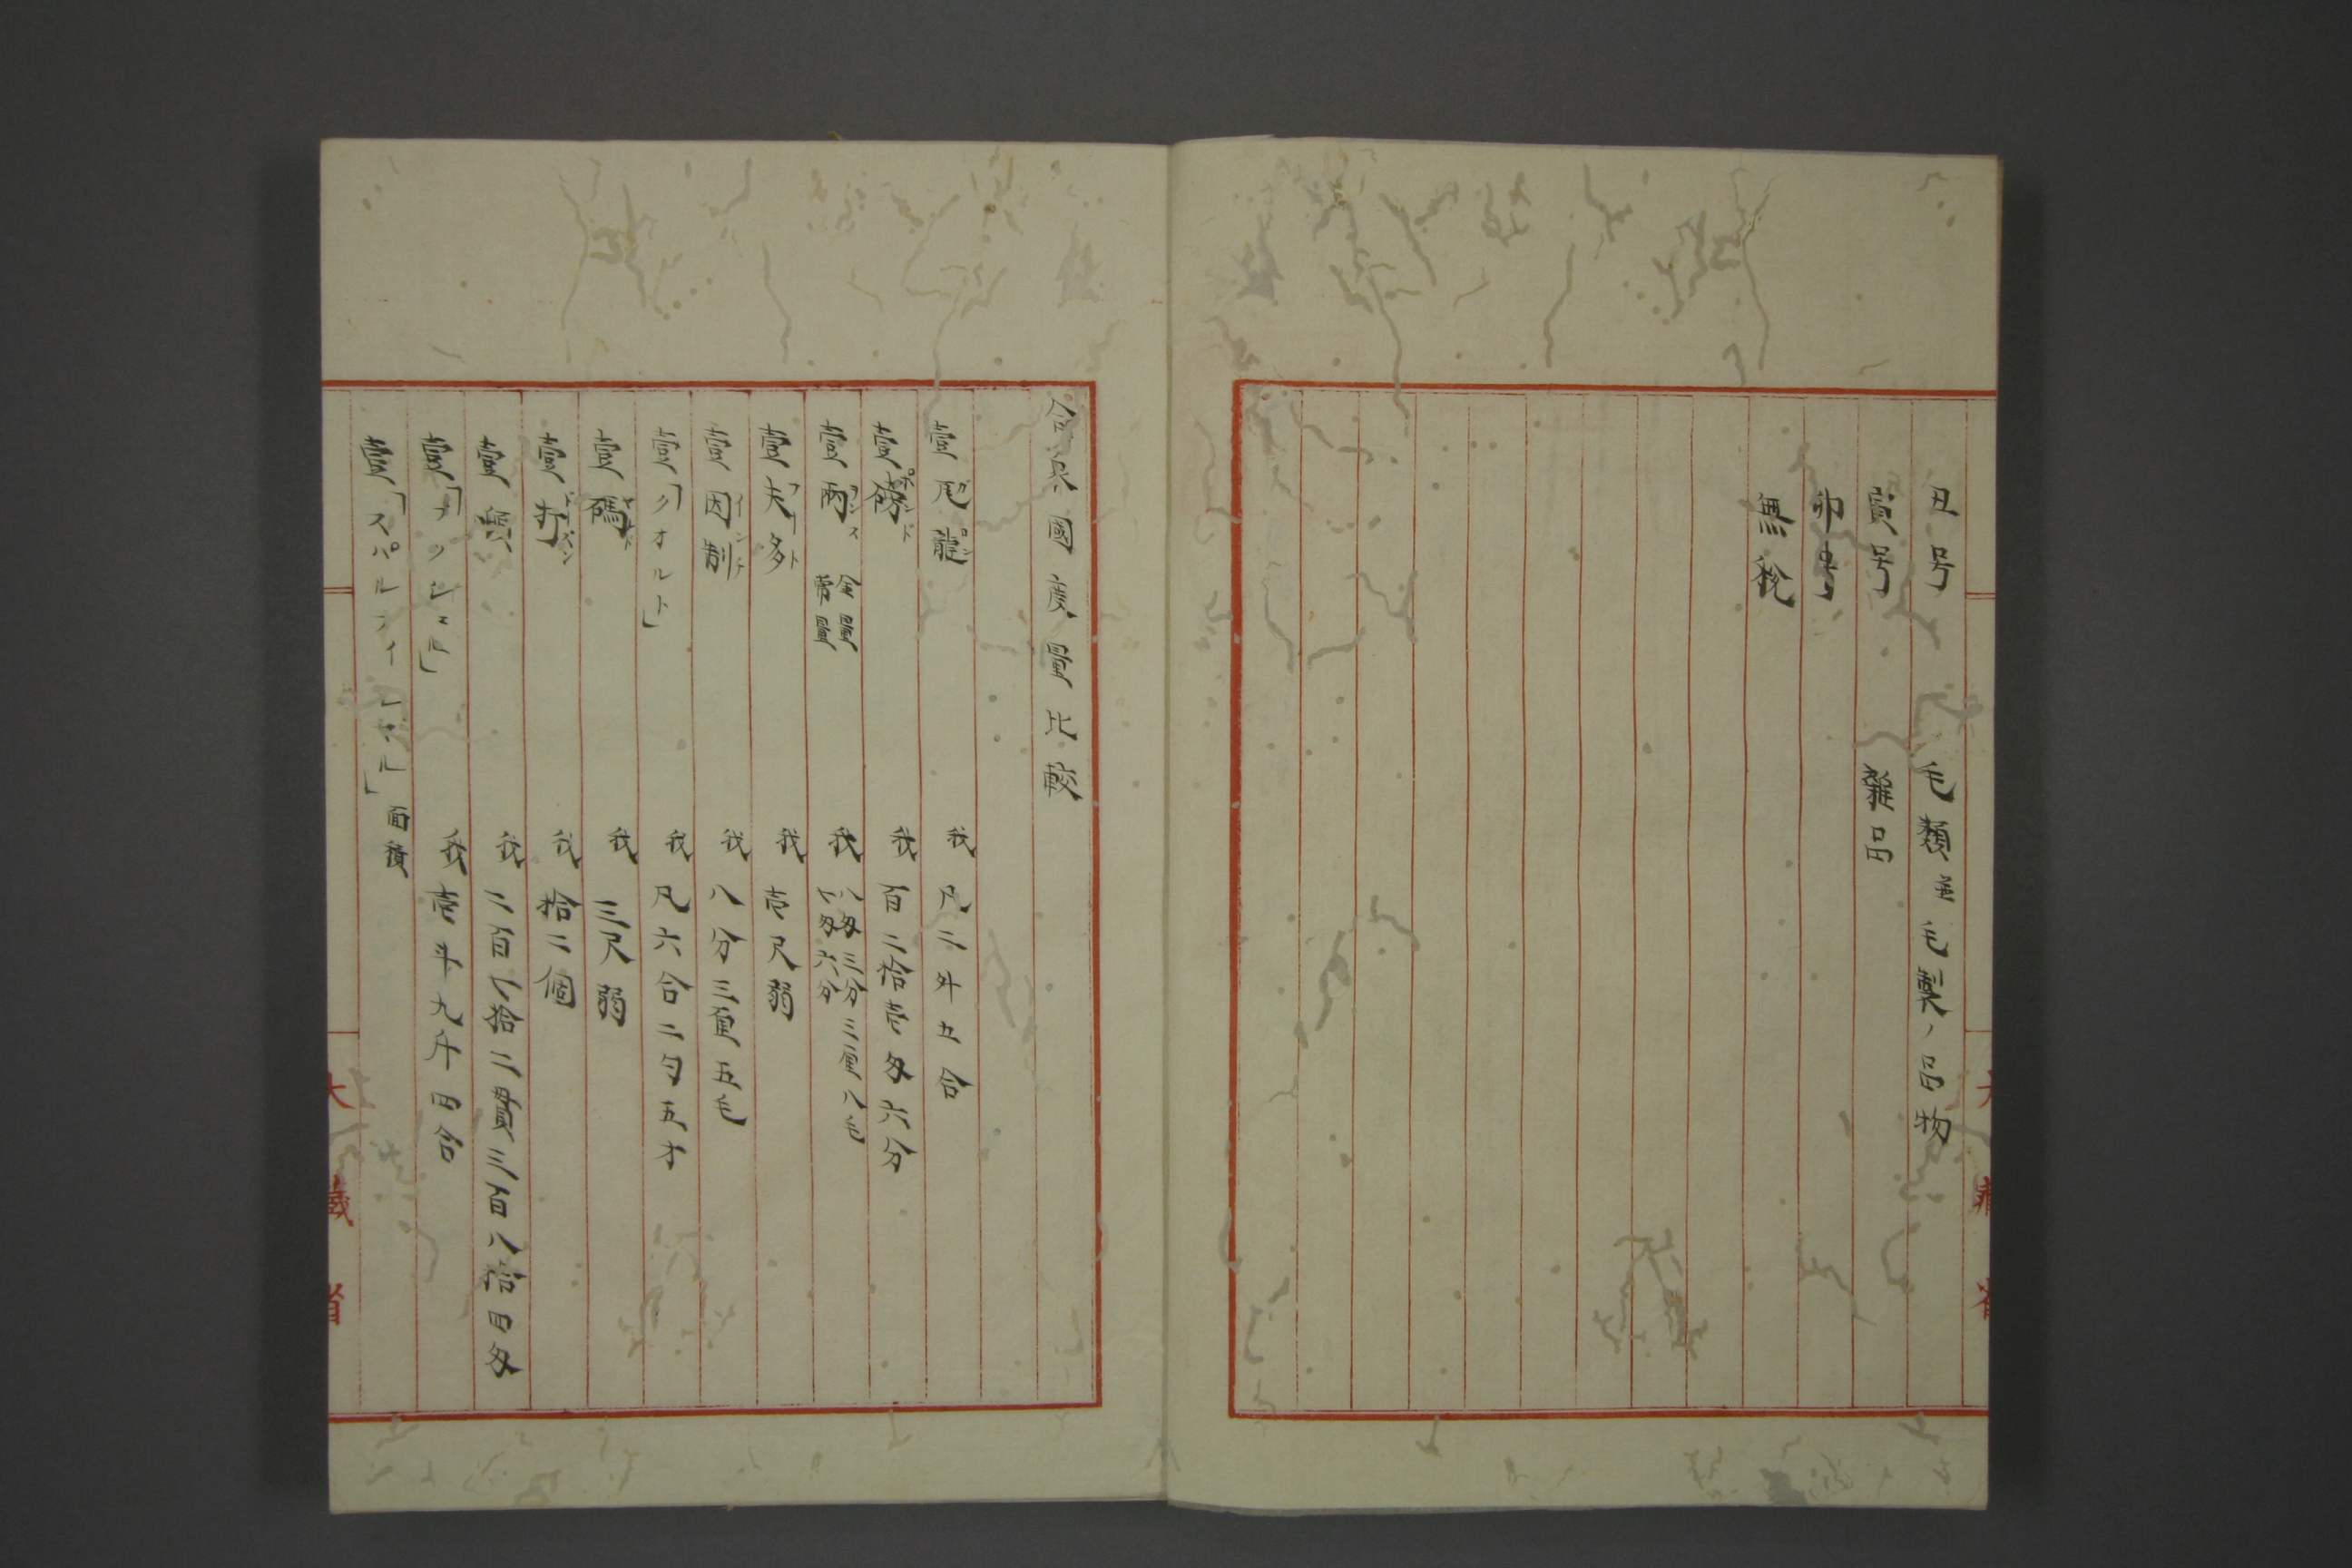 丑号 毛類並毛製ノ品物
寅号 雜品
卯号
無税
大藏省
合衆國度量比較
壹瓦龍 ガロン 我凡二升五合
壹磅 ポンド 我百二拾壱匁六分
壹兩 ヲンス 金量 我八匁三分三厘八毛
常量 七匁六分
壹夫多 フート 我壱尺弱
壹因制 インチ 我八分三厘五毛
壹「クオルト」 我凡六合二勺五才
壹碼 ヤード 我三尺弱
壹打 ドーズン 我拾二個
壹噸 我二百七拾二貫三百八拾四匁
壹「ブッシェル」 我壱斗九升四合
壹「スパルフィシャル」面積
大藏省